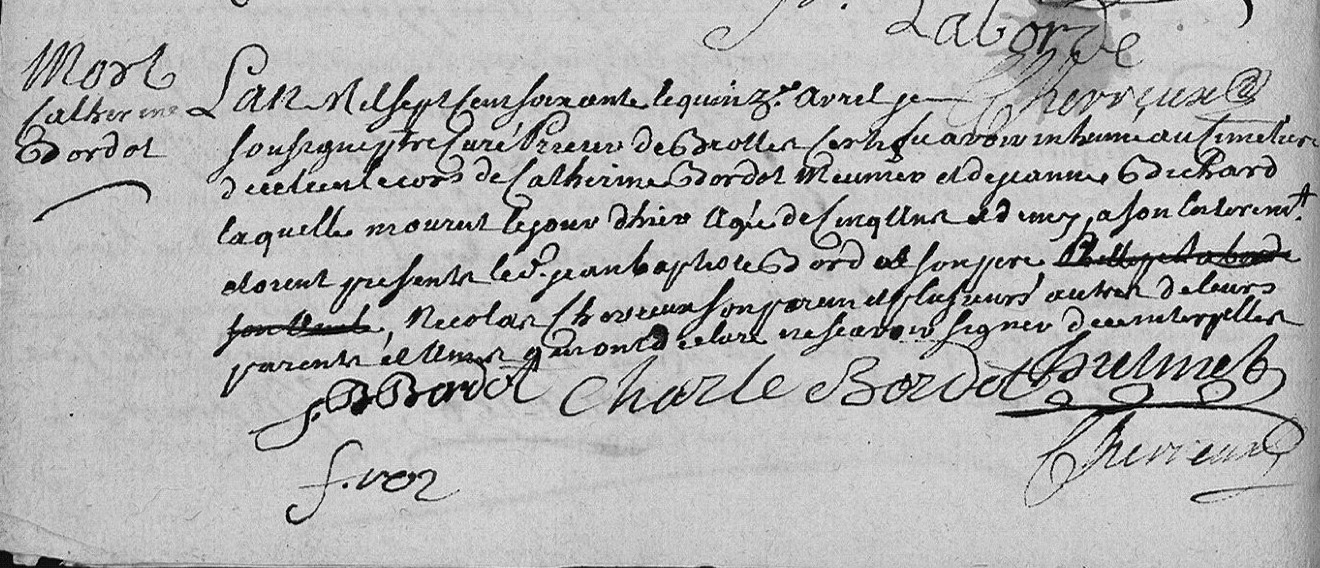 Laborde
Chevreux
Mort
Catherine
Bordot
Lan Mil sept Cent soixante le quinze avril je
soussigné ptre Curé Prieur de Brottes Certifie avoir inhumé au Cimetiere
dece lieu le cors de Catherine Bordot Meunier et de jeanne Brichard
laquelle mourut le jour dhier Agée de Cinq Ans et demy, a son Enteremt.
etoient presents le Sr. jean baptiste Bordot son pere
, Nicolas Chevreux son parein et plusieurs autres de leurs
parents et Amis qui ont declaré ne scavoir signer de ce interpelles
J B Bordot Charle Bordot Thelmet
Chevreux